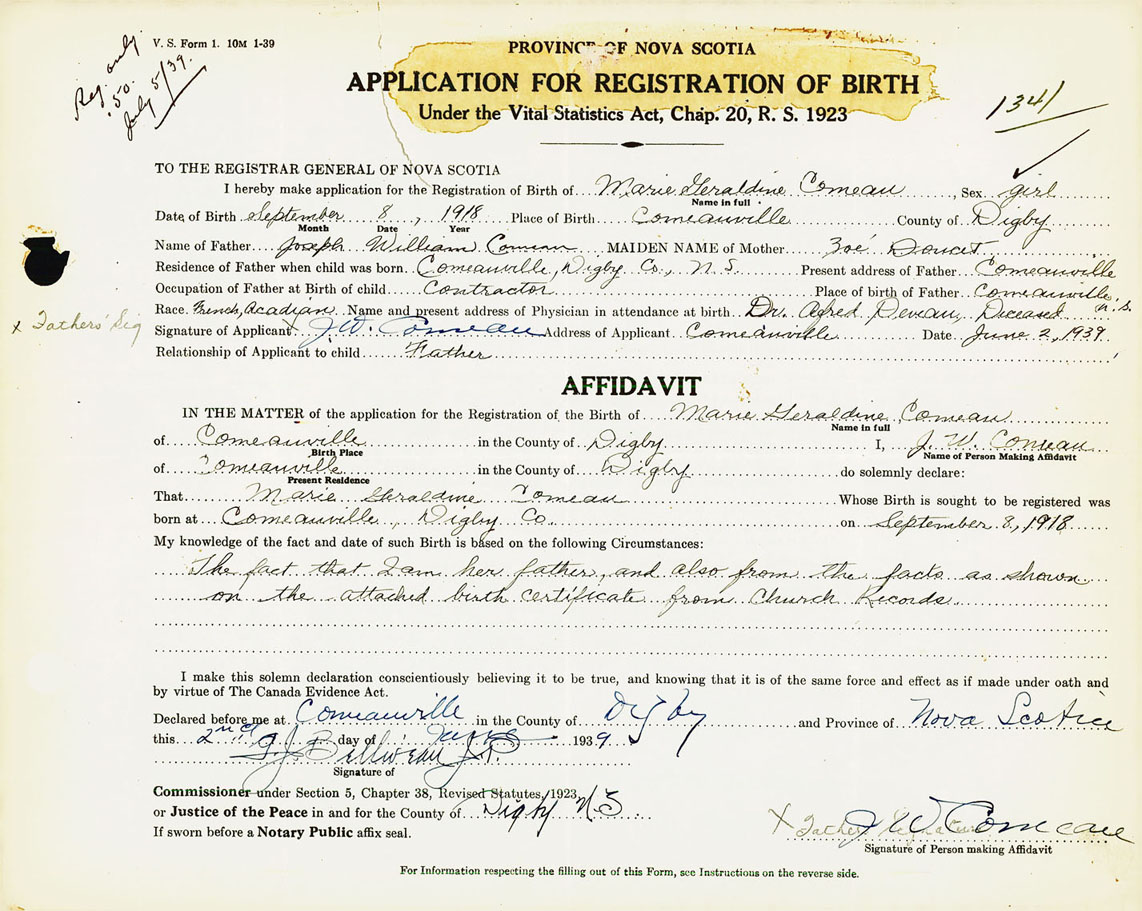 V. S. Form 1. 10M 1-39
Reg. only
.50
July 5/39.
PROVINCE OF NOVA SCOTIA
APPLICATION FOR REGISTRATION OF BIRTH
Under the Vital Statistics Act, Chap. 20, R. S. 1923
1341
TO THE REGISTRAR GENERAL OF NOVA SCOTIA
I hereby make application for the Registration of Birth of Marie Geraldine Comeau, Sex girl
Name in full
Date of Birth September 8, 1918 Place of Birth Comeauville County of Digby
Month Date Year
Name of Father Joseph William Comeau MAIDEN NAME of Mother Zoé Doucet
Residence of Father when child was born Comeauville, Digby Co., N.S. Present address of Father Comeauville
Occupation of Father at Birth of child Contractor Place of birth of Father Comeauville, N.S.
Race French, Acadian Name and present address of Physician in attendance at birth Dr. Alfred Deveau, Deceased
x Fathers' Sig
Signature of Applicant x J.W. Comeau Address of Applicant Comeauville Date June 2, 1939
Relationship of Applicant to child Father
AFFIDAVIT
IN THE MATTER of the application for the Registration of the Birth of Marie Geraldine Comeau
Name in full
of Comeauville in the County of Digby I, J. W. Comeau
Birth Place Name of Person Making Affidavit
of Comeauville in the County of Digby do solemnly declare:
Present Residence
That Marie Geraldine Comeau Whose Birth is sought to be registered was
born at Comeauville, Digby Co. on September 8, 1918
My knowledge of the fact and date of such Birth is based on the following Circumstances:
The fact that I am her father, and also from the facts as shown
on the attached birth certificate from Church Records.
I make this solemn declaration conscientiously believing it to be true, and knowing that it is of the same force and effect as if made under oath and
by virtue of The Canada Evidence Act.
Declared before me at Comeauville in the County of Digby and Province of Nova Scotia
this 2nd day of June 1939
J.P.
Signature of
Commissioner under Section 5, Chapter 38, Revised Statutes, 1923
or Justice of the Peace in and for the County of Digby N S
If sworn before a Notary Public affix seal.
x Father J W Comeau
Signature of Person making Affidavit
For Information respecting the filling out of this Form, see Instructions on the reverse side.